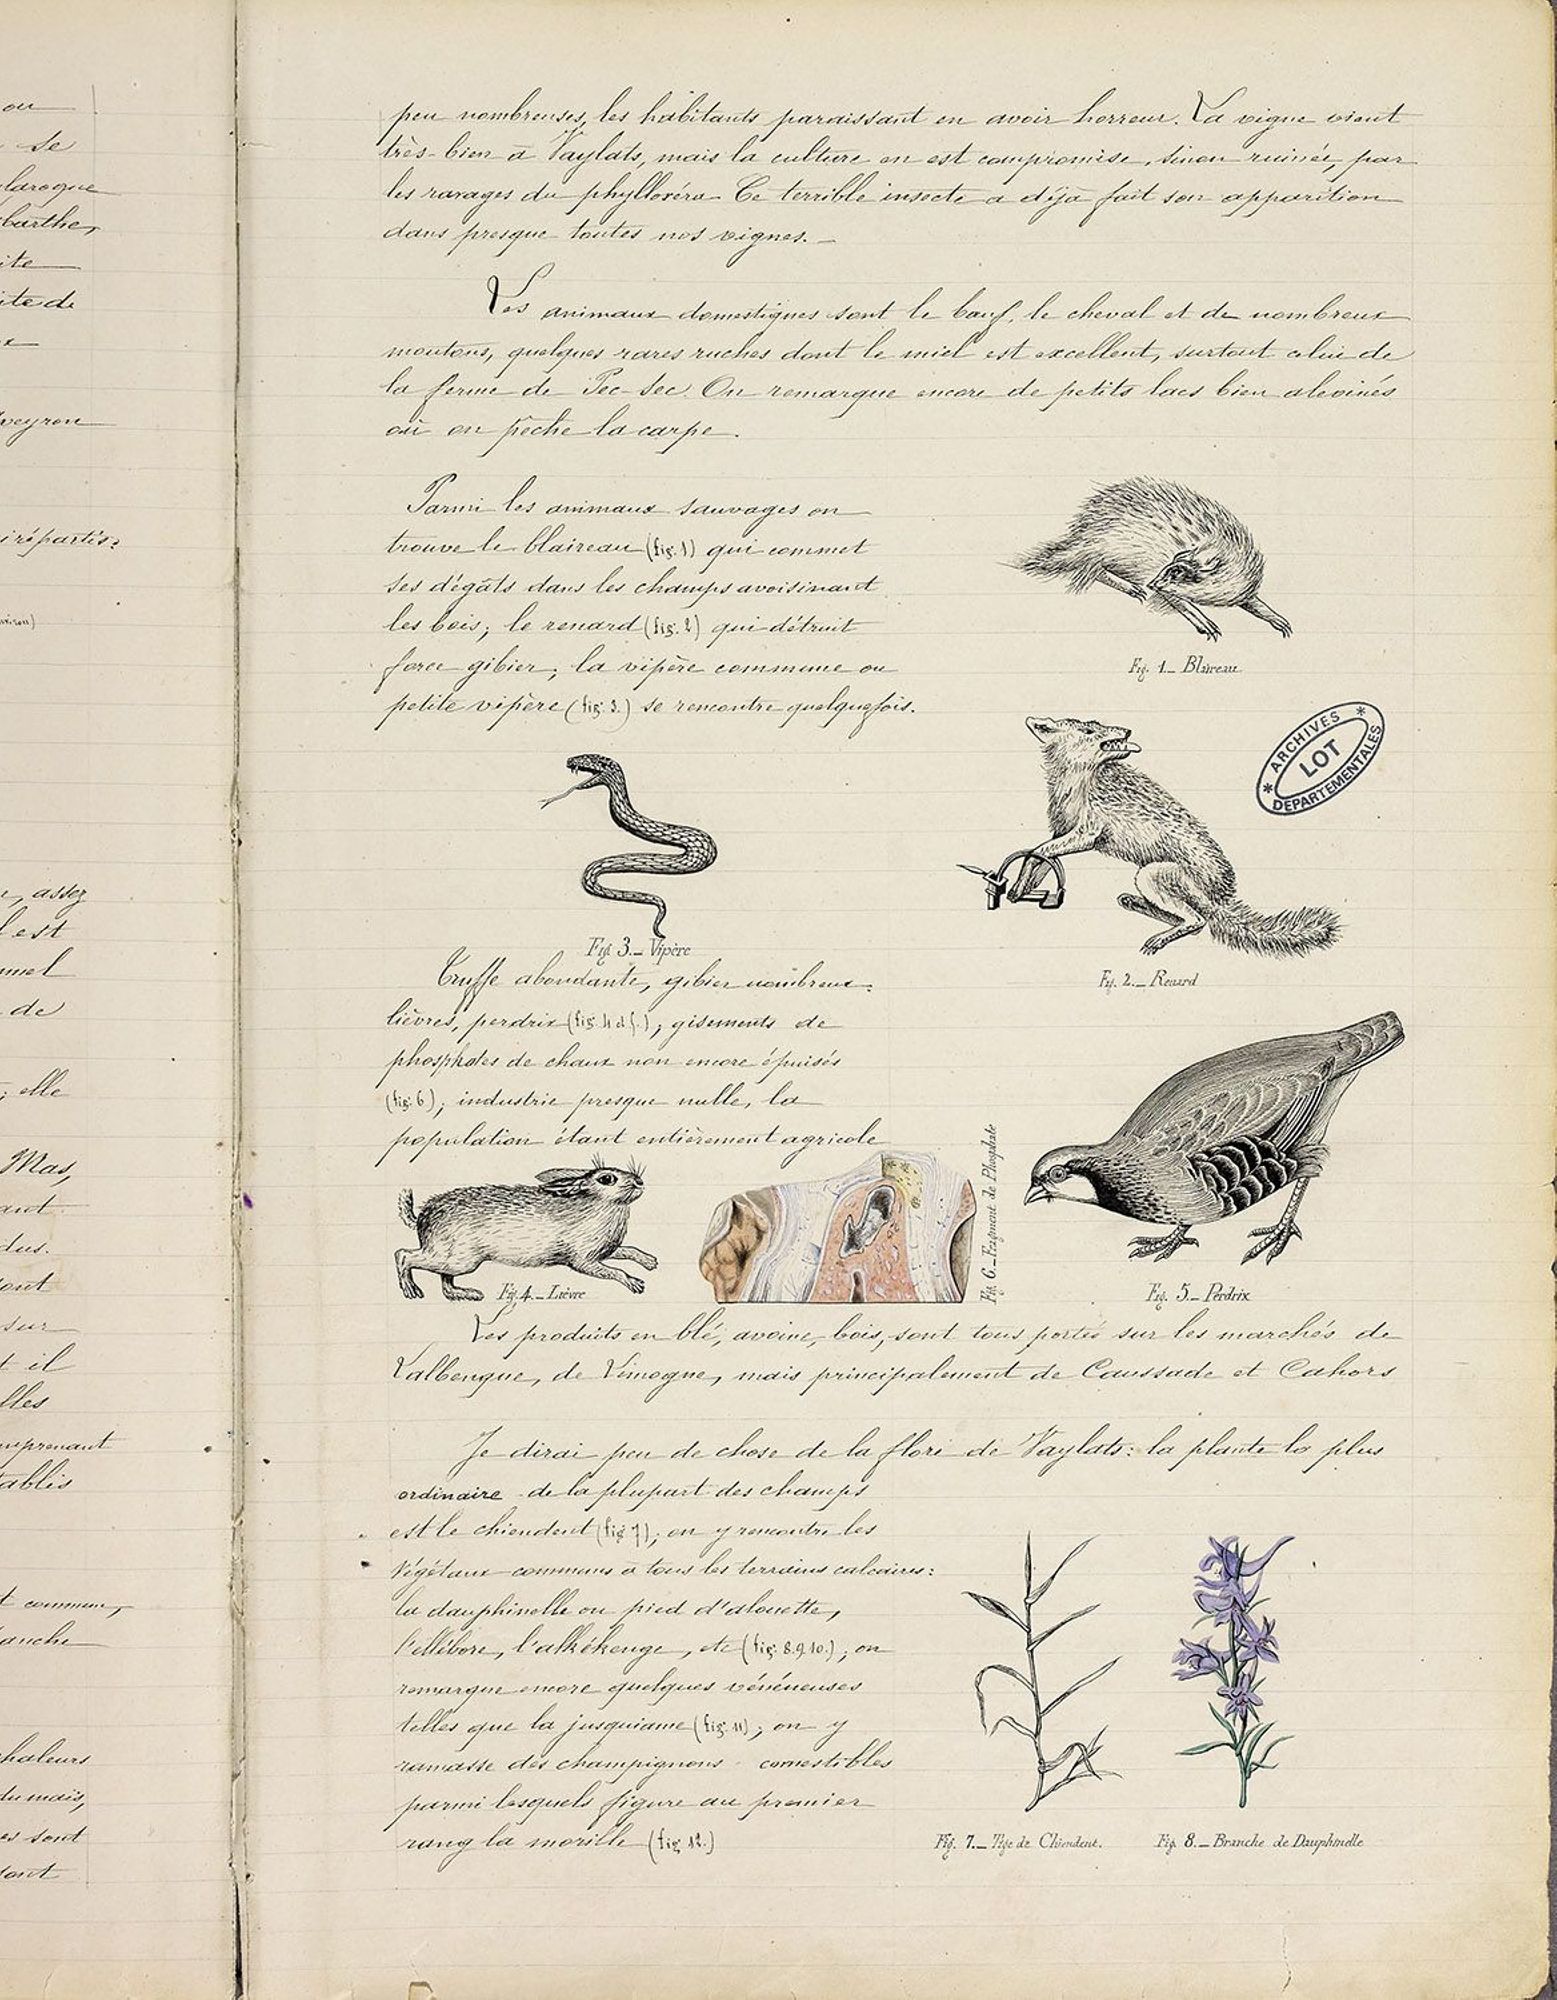 ou
se
laroque
barthe,
ite
ite de
x
veyron
irépartis:
, assez
l est
nnel
de
; elle
Mas,
ant
dus.
ont
sur
t il
lles
mprenant
tablis
t commun,
anche
haleurs
du maïs,
es sont
dont
peu nombreuses, les habitants paraissant en avoir horreur. La vigne vient
très-bien à Vaylats, mais la culture en est compromise, sinon ruinée, par
les ravages du phylloxéra. Ce terrible insecte a déjà fait son apparition
dans presque toutes nos vignes. _
Les animaux domestiques sont le bœuf, le cheval et de nombreux
moutons, quelques rares ruches dont le miel est excellent, surtout celui de
la ferme de Pec-Sec. On remarque encore de petits lacs bien alevinés
où on pêche la carpe.
Parmi les animaux sauvages on
trouve le blaireau (fig. 1) qui commet
ses dégâts dans les champs avoisinant
les bois; le renard (fig. 2) qui détruit
force gibier; la vipère commune ou
petite vipère (fig. 3.) se rencontre quelquefois.
Fig. 1._ Blaireau
ARCHIVES DEPARTEMENTALES
LOT
Fig. 2._ Renard
Fig. 3._ Vipère
Truffe abondante, gibier nombreux:
lièvres, perdrix (fig. 4 et 5.); gisements de
phosphates de chaux non encore épuisés
(fig. 6); industrie presque nulle, la
population étant entièrement agricole
Fig. 4._ Lièvre
Fig. 6._ Fragment de Phosphate
Fig. 5._ Perdrix
Les produits en blé, avoine, bois, sont tous portés sur les marchés de
Lalbenque, de Limogne, mais principalement de Caussade et Cahors
Je dirai peu de chose de la flore de Vaylats: la plante la plus
ordinaire de la plupart des champs
est le chiendent (fig 7); on y rencontre les
végétaux communs à tous les terrains calcaires:
la dauphinelle ou pied d'alouette,
l'ellébore, l'alkékenge, etc (fig. 8.9.10.); on
remarque encore quelques vénéneuses
telles que la jusquiame (fig. 11); on y
ramasse des champignons comestibles
parmi lesquels figure au premier
rang la morille (fig 12.)
Fig. 7._ Tige de Chiendent.
Fig. 8._ Branche de Dauphinelle